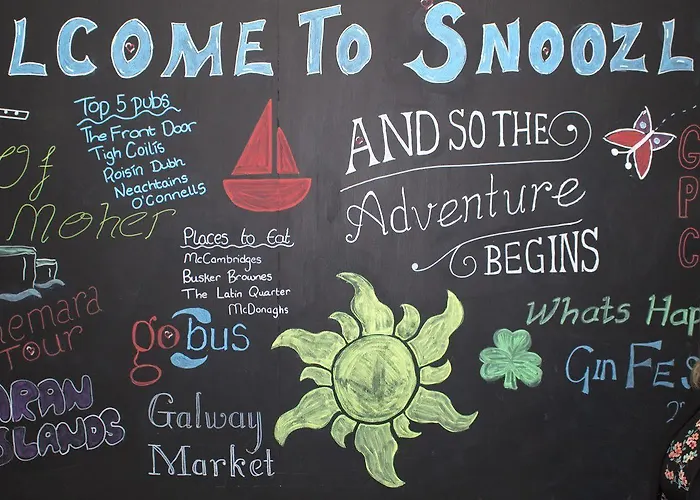 LCOME TO SNOOZL
Top 5 pubs
The Front Door
Tigh Coilis
Roisin Dubh
Neachtains
O'Connells
AND SO THE
Adventure
BEGINS
Of
Moher
Places to Eat
McCambridges
Busker Brownes
The Latin Quarter
McDonaghs
G
P
C
emara
Tour
gobus
Whats Hap
Gin FES
ARAN
ISLANDS
Galway
Market